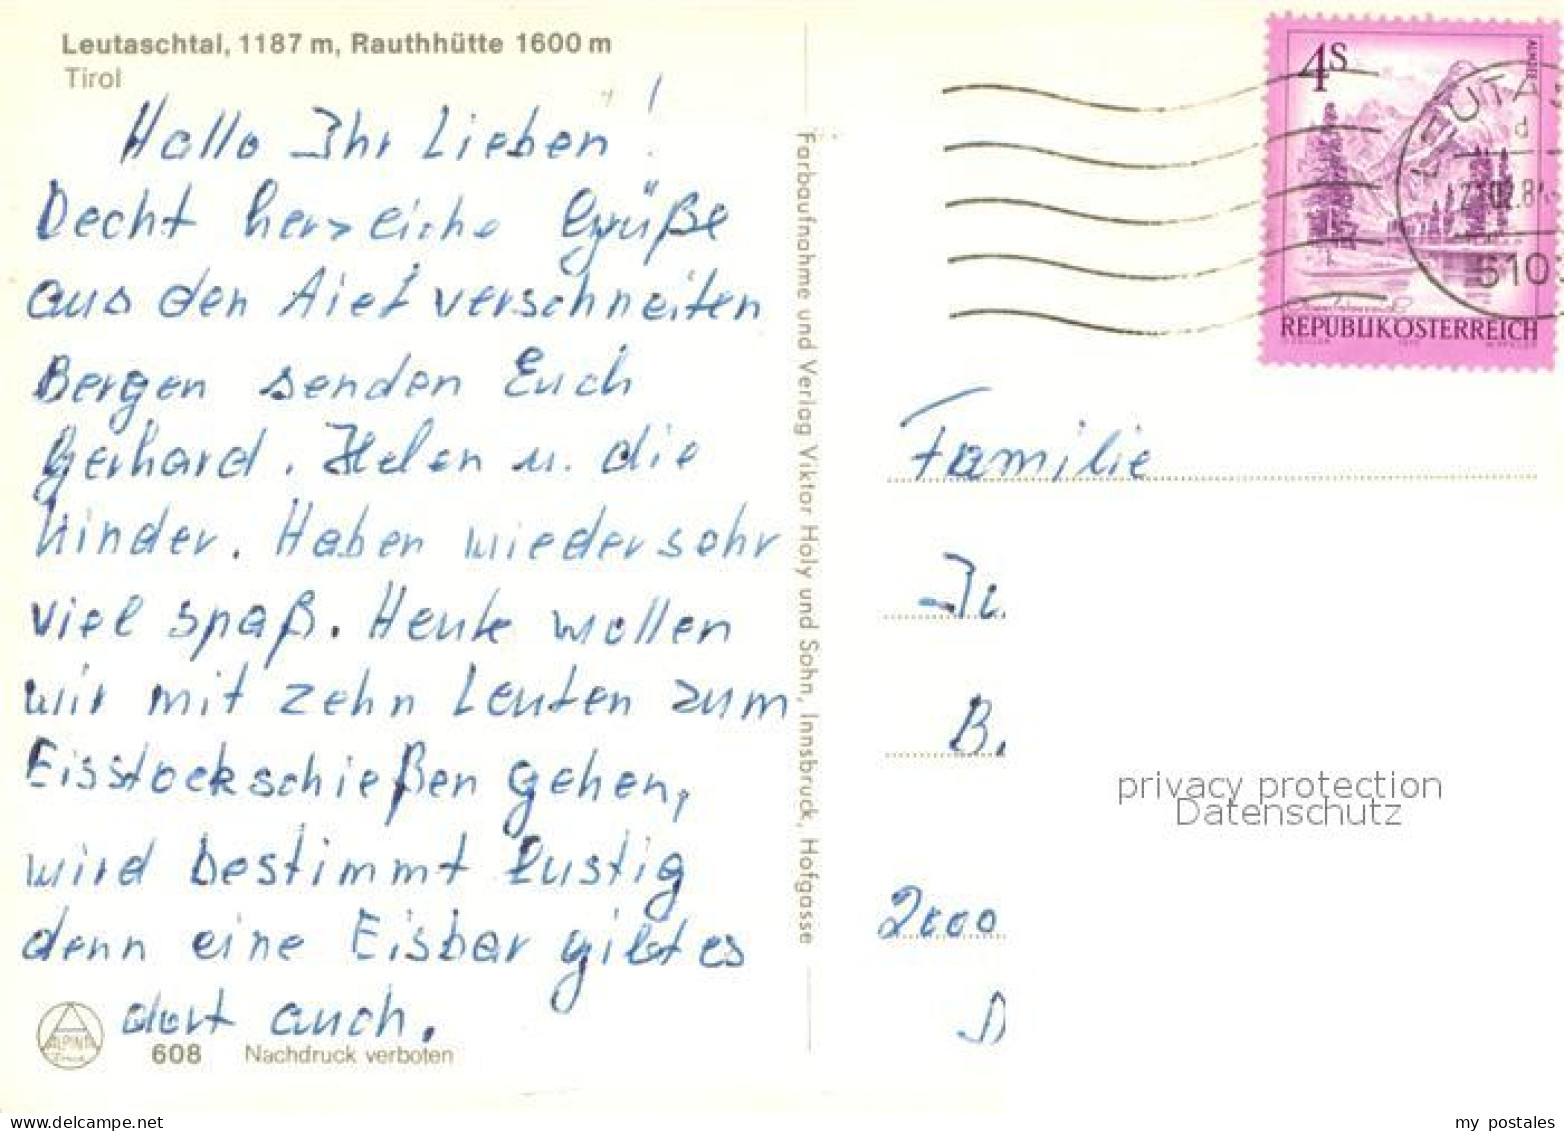 Leutaschtal, 1187 m, Rauthhütte 1600 m
Tirol
Hallo Ihr Lieben!
Recht herzliche Grüße
aus den tief verschneiten
Bergen senden Euch
Gerhard. Helen u. die
Kinder. Haben wieder sehr
viel spaß. Heute wollen
wir mit zehn Leuten zum
Eisstockschießen gehen,
wird bestimmt lustig
denn eine Eisbar gibt es
dort auch.
ALPINA
608 Nachdruck verboten
Farbaufnahme und Verlag Viktor Holy und Sohn, Innsbruck, Hofgasse
4S
ALMSEE
REPUBLIK ÖSTERREICH
LEUTA
d
.02.84
610
Familie
B.
2000
privacy protection
Datenschutz
my postales